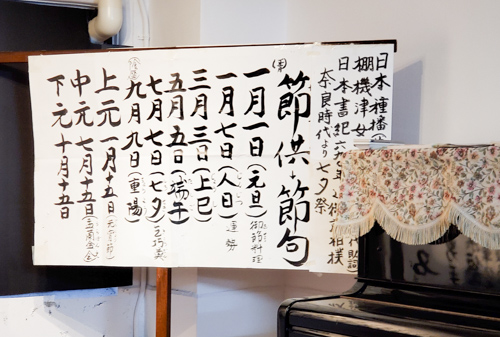 日本種播
棚機津女
日本書紀
奈良時代より七夕祭
節供→節句
一月一日(元旦)御節料理
一月七日(人日)
三月三日(上巳)
五月五日(端午)
七月七日(七夕)乞巧奠
九月九日(重陽)
上元 一月十五日
中元 七月十五日
下元 十月十五日